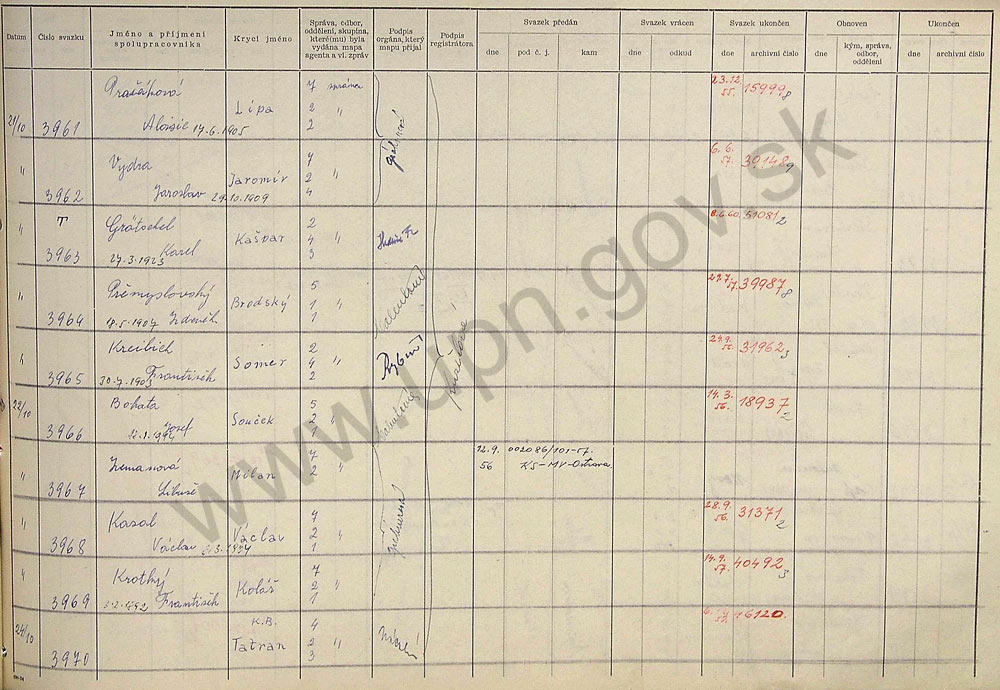 Datum
Číslo svazku
Jméno a příjmení spolupracovníka
Krycí jméno
Správa, odbor, oddělení, skupina, které(mu) byla vydána mapa agenta a vl. zpráv
Podpis orgána, který mapu přijal
Podpis registrátora
Svazek předán
dne
pod č. j.
kam
Svazek vrácen
dne
odkud
Svazek ukončen
dne
archivní číslo
Obnoven
dne
kým, správa, odbor, oddělení
Ukončen
dne
archivní číslo
21/10 3961
Aloisie 17.6.1905
Lípa
7 správa
2 "
2
23.12. 55. 15999 8
" 3962
Vydra
Jaroslav 29.10.1909
Jaromír
7
2 "
4
6.6. 57. 30148 9
" T 3963
Karel
27.3.1923
Kašpar
2
4 "
3
8.6.60. 51081 2
" 3964
Přemyslovský
18.5.1907 Zdeněk
Brodský
5
1 "
1
39987 8
" 3965
Kreibich
František
Somer
2
4 "
2
31962 3
22/10 3966
Bohata
Josef
Souček
5
2 "
1
14.3. 56. 18937 2
" 3967
Zemanová
Libuše
Milan
7
2 "
12.9. 56
002086/101-57.
KS-MV-Ostrava.
" 3968
Kasal
Václav
Václav
7
2 "
1
28.9. 56. 31371 2
" 3969
Krothý
František
Kolář
7
2 "
1
14.9. 57. 40492 3
24/10 3970
K.B.
Tatran
4
2 "
3
16120.
www.upn.gov.sk